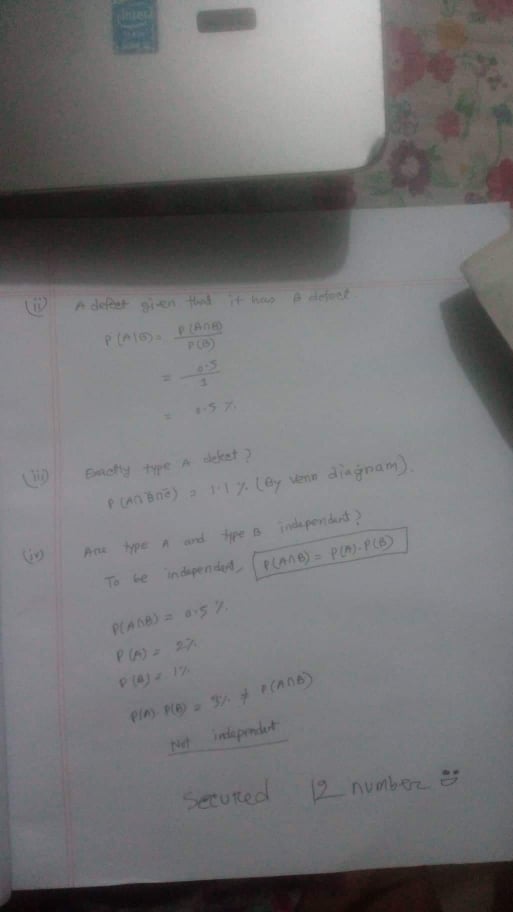 intel
(ii) A defect given that it has B defect.
P(A|B) = P(A∩B) / P(B)
= 0.5 / 1
= 0.5 %.
(iii) Exactly type A defect?
P(A∩B̅∩C̅) = 1.1 % (By venn diagram).
(iv) Are type A and type B independent?
To be independent, P(A∩B) = P(A).P(B)
P(A∩B) = 0.5 %.
P(A) = 2%
P(B) = 1%
P(A). P(B) = ≠ P(A∩B)
Not independent
Secured 12 number